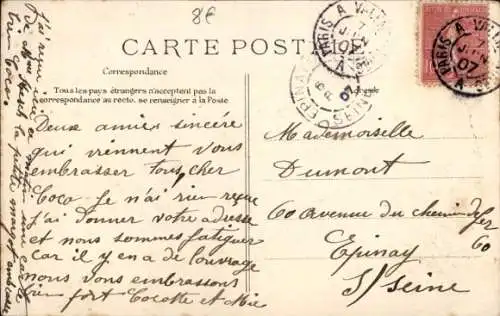 8€
CARTE POSTALE
Correspondance
Tous les pays étrangers n'acceptent pas la
correspondance au recto, se renseigner à la Poste
Deux amies sincère
qui viennent vous
embrasser tous cher
Coco Je n'ai rien reçue
j'ai donner votre adresse
et nous sommes fatiguer
car il y en a de l'ouvrage
nous vous embrassons
bien fort Cocotte et Mie
J'ai reçu ce matin une carte
De la petite
bien Coco.
PARIS A
7
JUIN
07
PARIS A
7
JUIN
07
EPINAY
07
SEINE
Mademoiselle
Dumont
60 Avenue du chemin de fer
60
Epinay
S/Seine